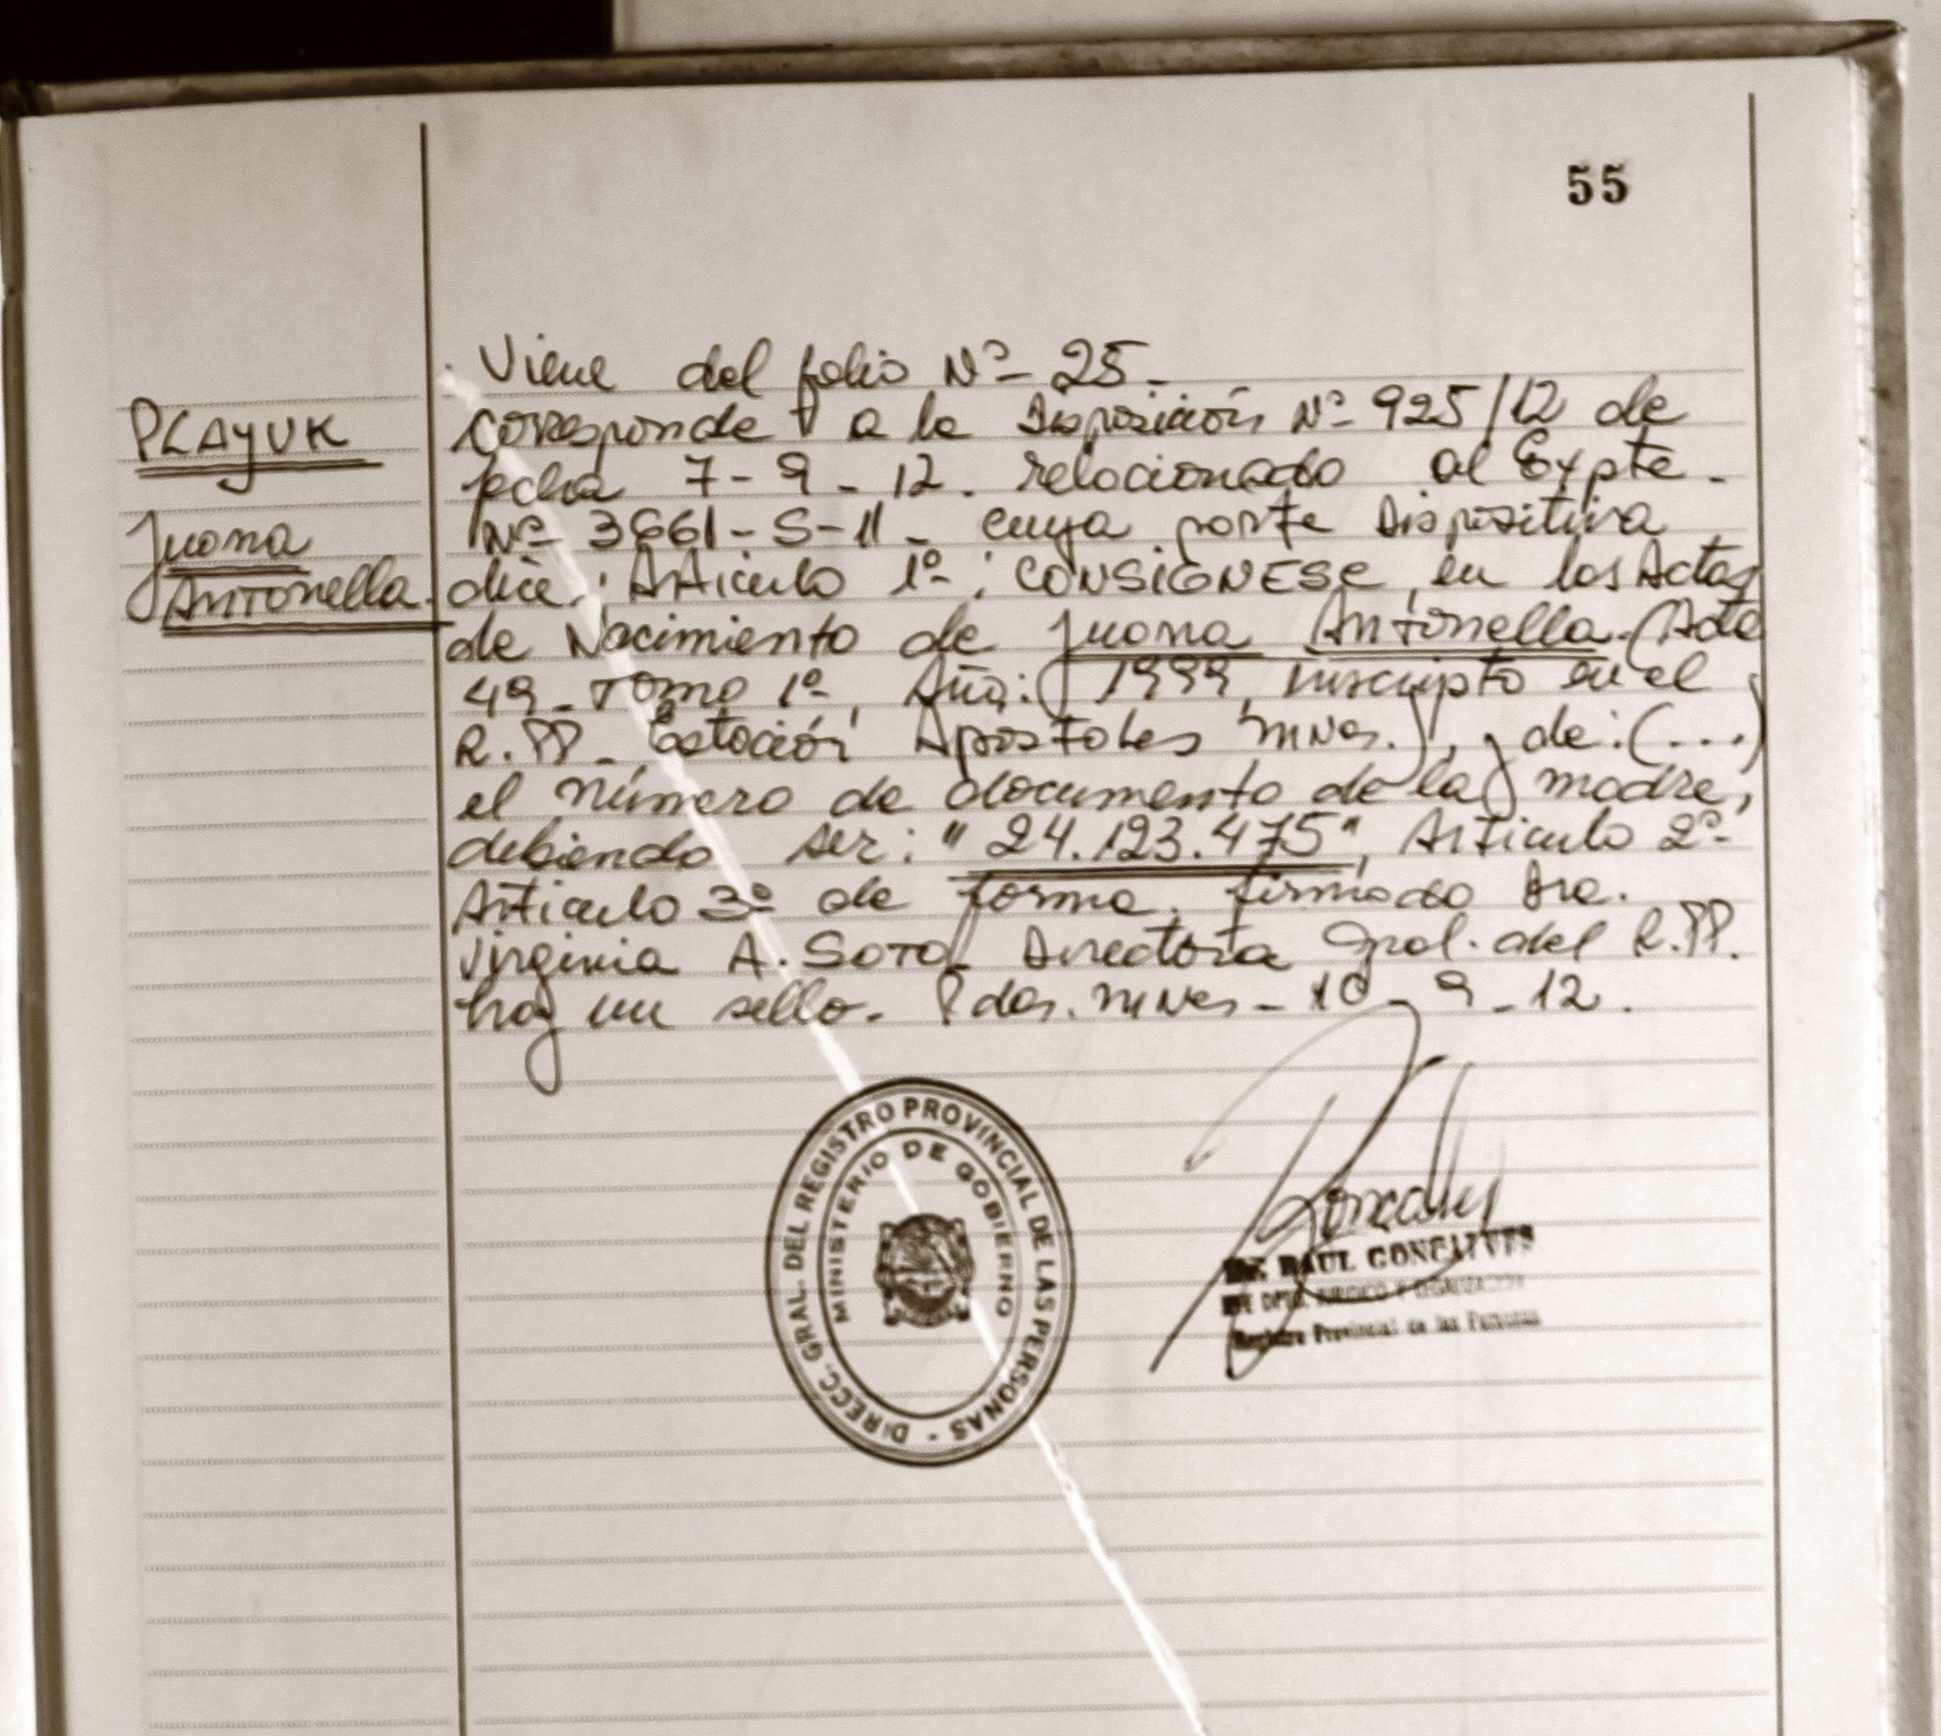 55
Viene del folio Nº- 25-
PLAYUK
Corresponde a la Disposición Nº- 925/12 de
fecha 7-9-12. relacionado al Expte-
Juana
Nº- 3661-S-11- cuya parte Dispositiva
Antonella.
dice: Articulo 1º-: CONSIGNESE, en los Actas
de Nacimiento de Juana Antonella-(Acta
49- Tomo 1º, Año: 1999, inscripto en el
R.PP- Estación Apostoles Mnes.), y de: (...)
el número de documento de la madre,
debiendo ser: "24.123.475", Articulo 2º-
Articulo 3º de forma. firmado Dra.
Virginia A. SOTO Directora Gral. del R.PP.
hay un sello. Pdas. Mnes- 10-9-12.
DIRECC. GRAL. DEL REGISTRO PROVINCIAL DE LAS PERSONAS -
MINISTERIO DE GOBIERNO
RAUL GONCALVES
Registro Provincial de las Personas